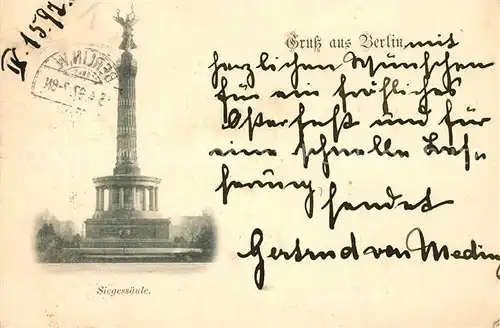 IV. 15. 92.
BERLIN, W.
Gruß aus Berlin mit
herzlichen Wünschen
für ein fröhliches
Osterfest und für
eine schnelle Bes-
serung sendet
Gertrud von Meding
Siegessäule.